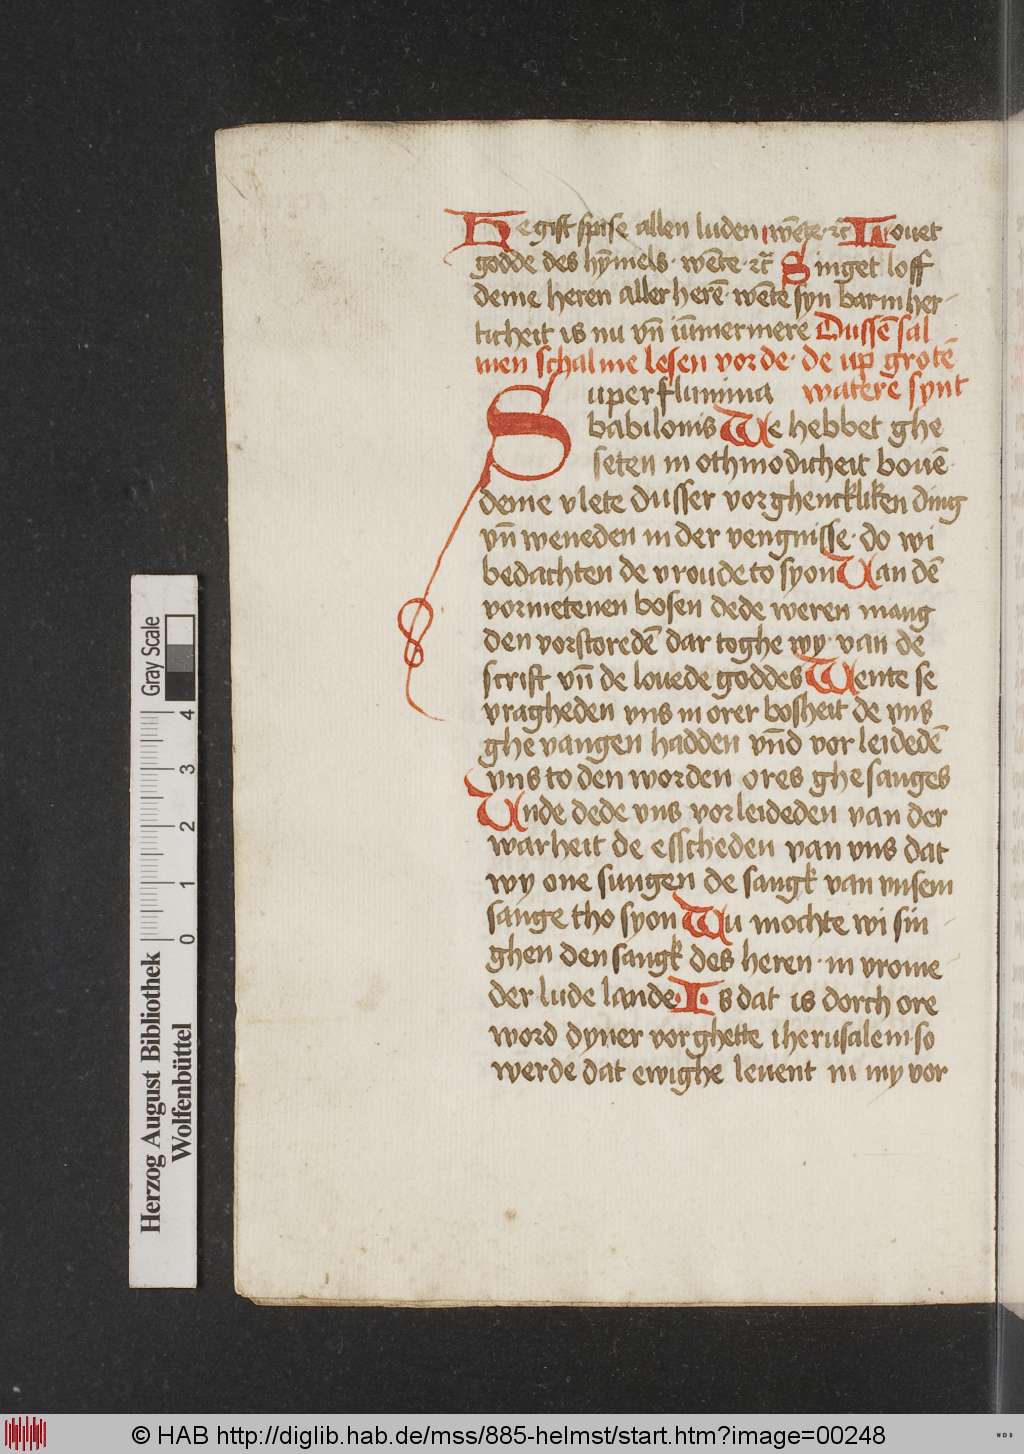 He gift spise allen luden wēte· ⁊c̄ Louet
godde des hȳmels· wēte ·⁊c̄ Singet loff
deme heren aller herē· wēte syn barmher-
ticheit is nu vn̄ iūmermere Dussē sal
men schalme lesen vor de· de up grotē
watere synt
Super flumina
babilonis We hebbet ghe
seten in othmodicheit bouē
deme vlete dusser vorghenckliken ding
vn̄ weneden in der vengnisse· do wi
bedachten de vroude to syon Van dē
vormetenen bosen dede weren mang
den vorstoredē dar toghe wy· van de
scrift vn̄ de louede goddes Wente se
vragheden vns in orer bosheit de vns
ghe vangen hadden vn̄d vorleidedē
vns to den worden ores ghesanges
Unde dede vns vorleideden van der
warheit de esscheden van vns dat
wy one sungen de sangk van vnsem
sange tho syon Wu mochte wi sin-
ghen den sangk des heren· in vrome
der lude lande· Is dat is dorch ore
word dyner vorghette iherusalem so
werde dat ewighe leuent in my vor
Herzog August Bibliothek
Wolfenbüttel
0 1 2 3 4
Gray Scale
© HAB http://diglib.hab.de/mss/885-helmst/start.htm?image=00248